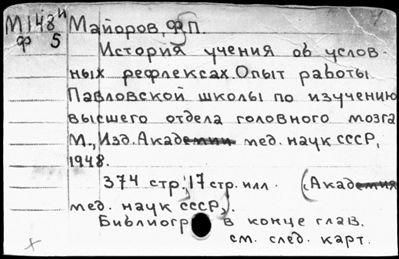 М148и Майоров, Ф.П.
ф 5 История учения об услов-
ных рефлексах. Опыт работы
Павловской школы по изучению
высшего отдела головного мозга
М., Изд. Академии мед. наук СССР,
1948.
374 стр.; 17 стр. илл. (Академия
мед. наук СССР).
Библиогр в конце глав.
см. след. карт.